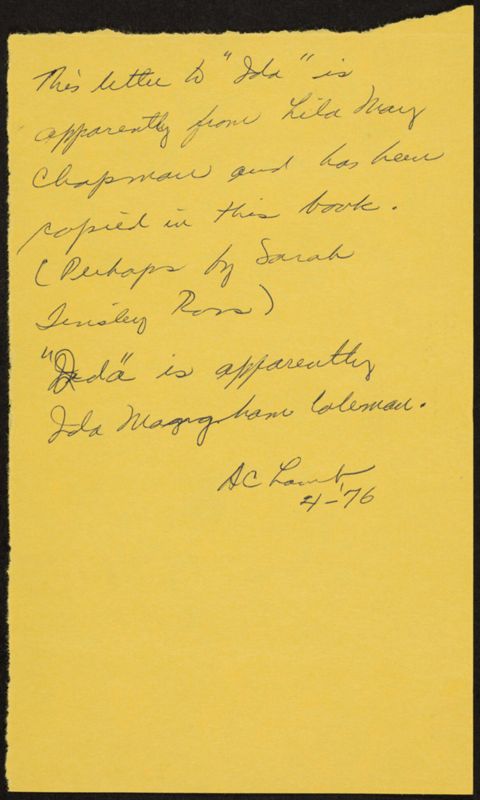 This letter to "Ida" is
apparently from Lila May
Chapman and has been
copied in this book.
(Perhaps by Sarah
Tinsley Ross)
"Ida" is apparently
Ida Coleman.
AC Lamb
4-'76